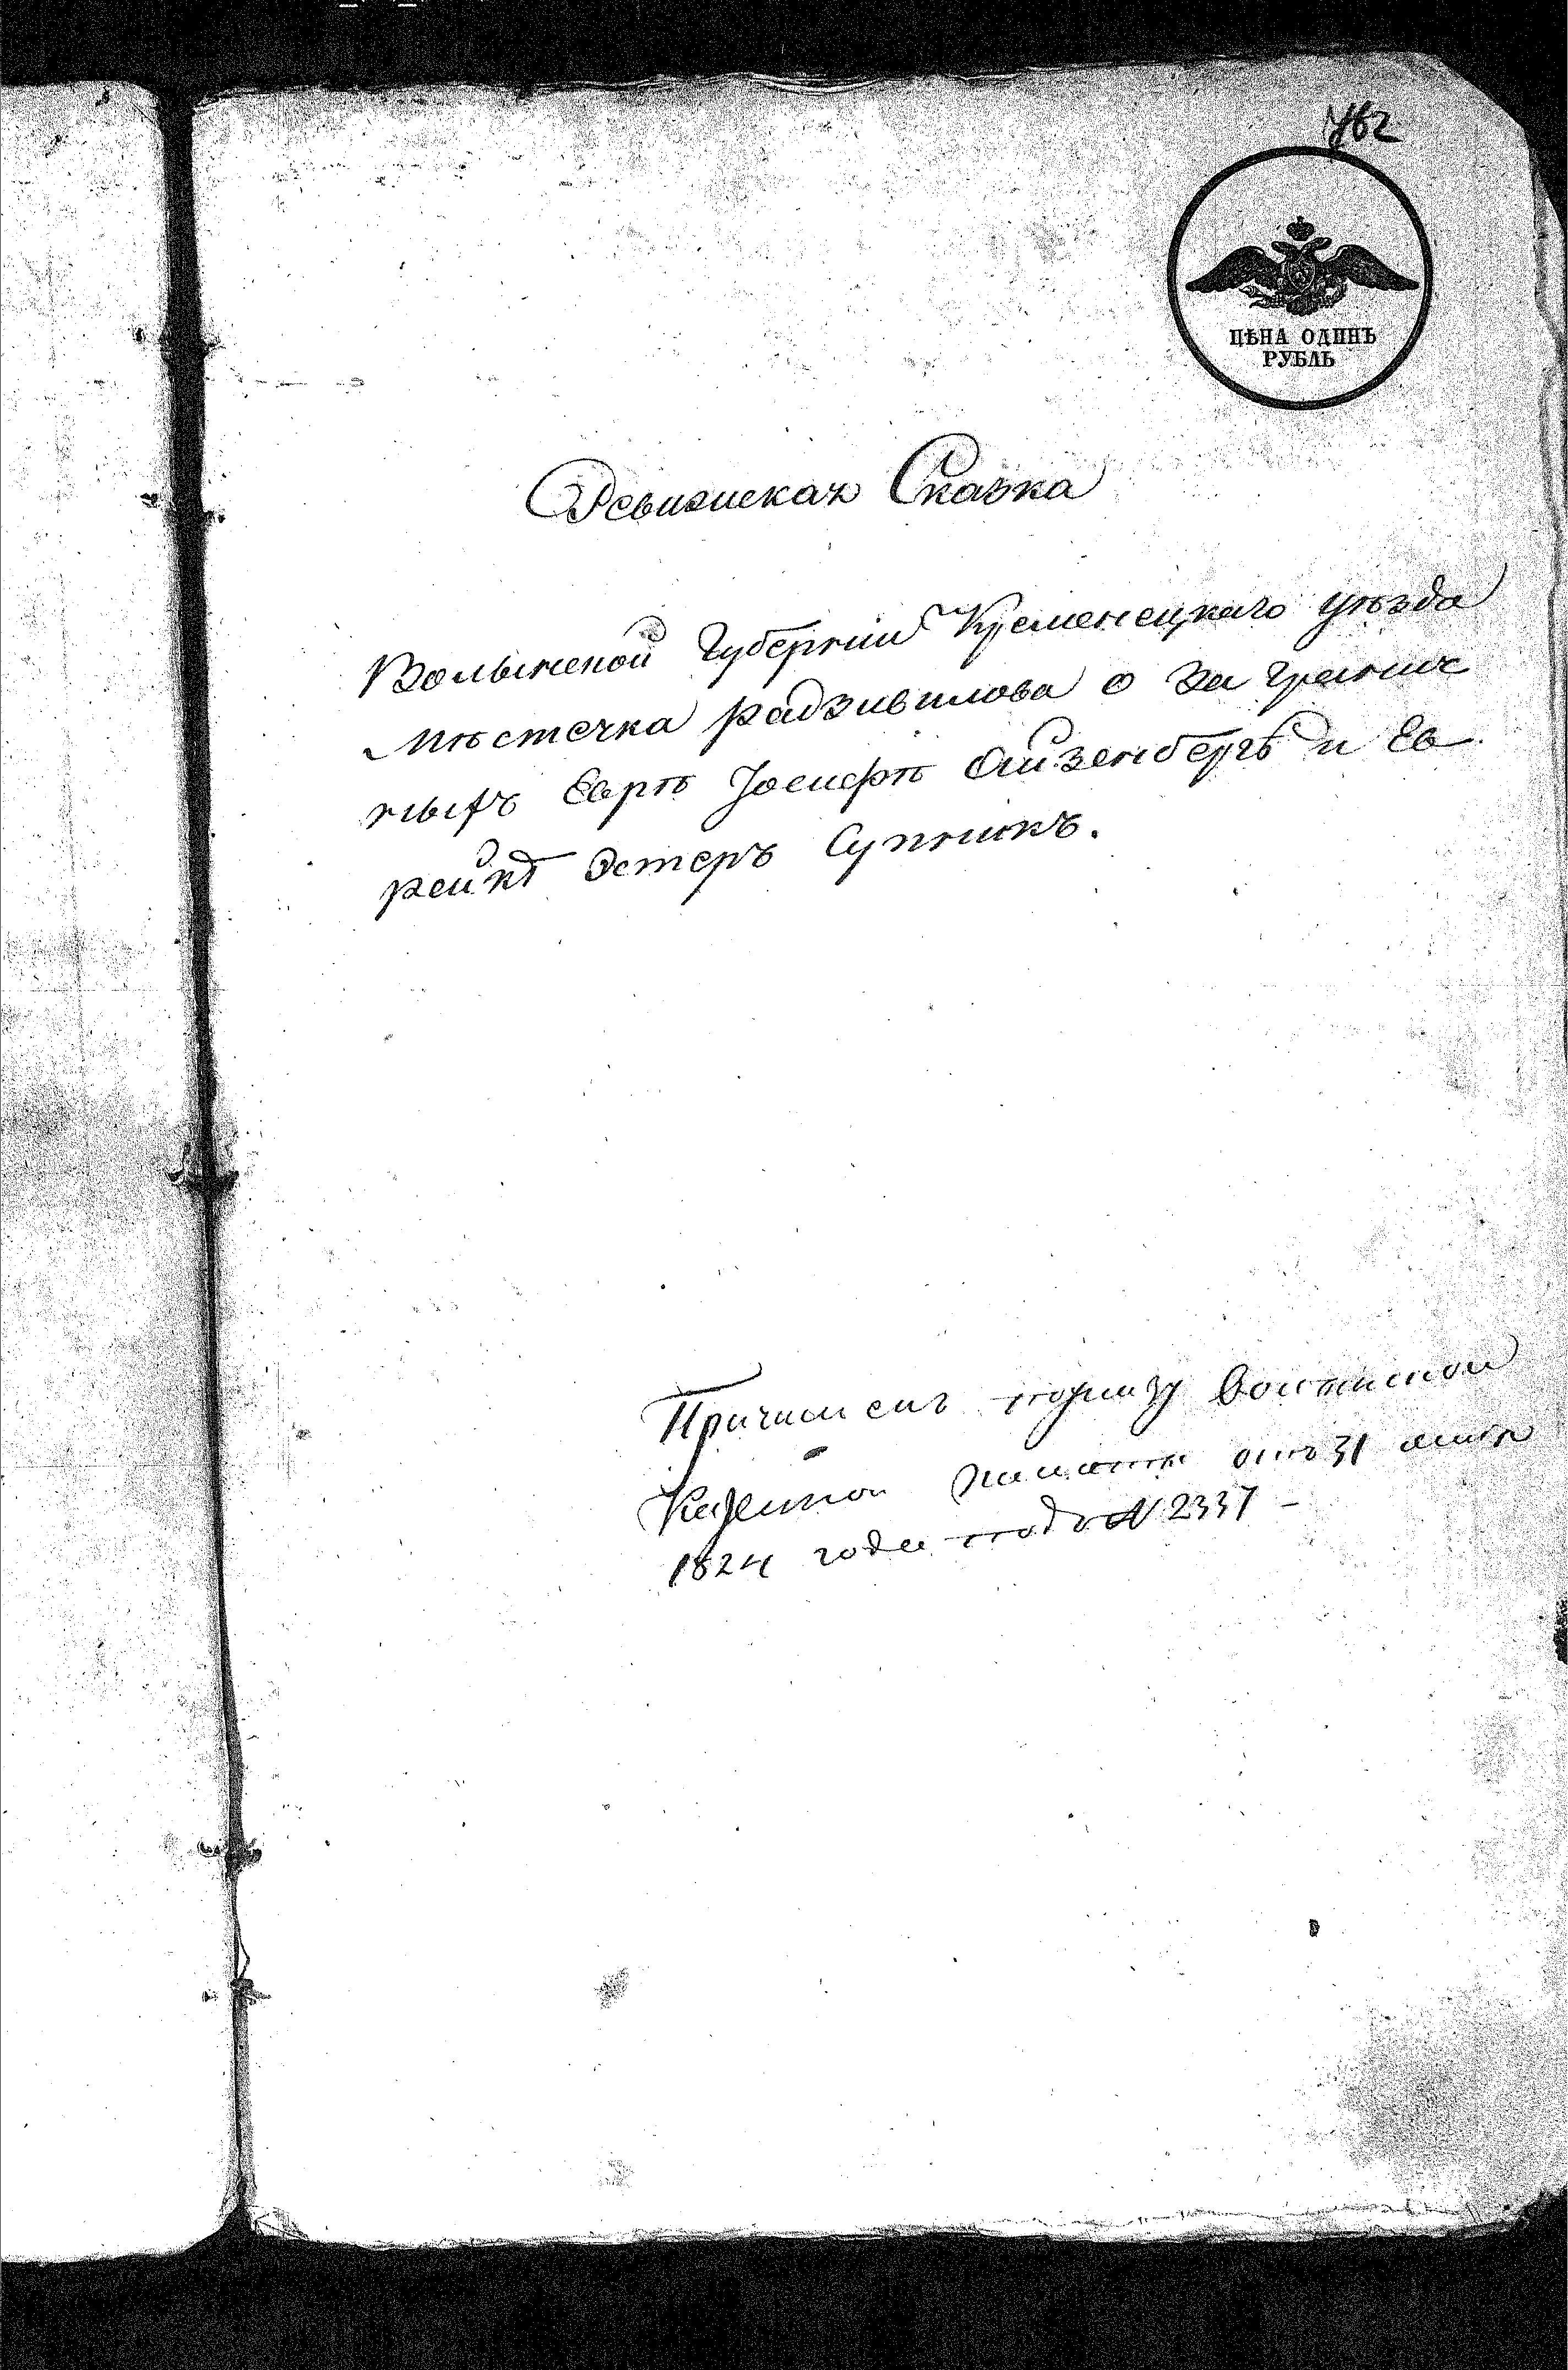 762
ЦѢНА ОДИНЪ
РУБЛЬ
Ревизская Сказка
Волынской Губернии Кременецкаго уѣзда
мѣстечка радзивилова о За гранич
ныхъ Еврѣ Іосифѣ Айзенбергѣ и Ев
рейкѣ Эстерѣ Супникѣ.
Причислены
Казенной Палаты отъ 31
1824 года подъ N 2337 –